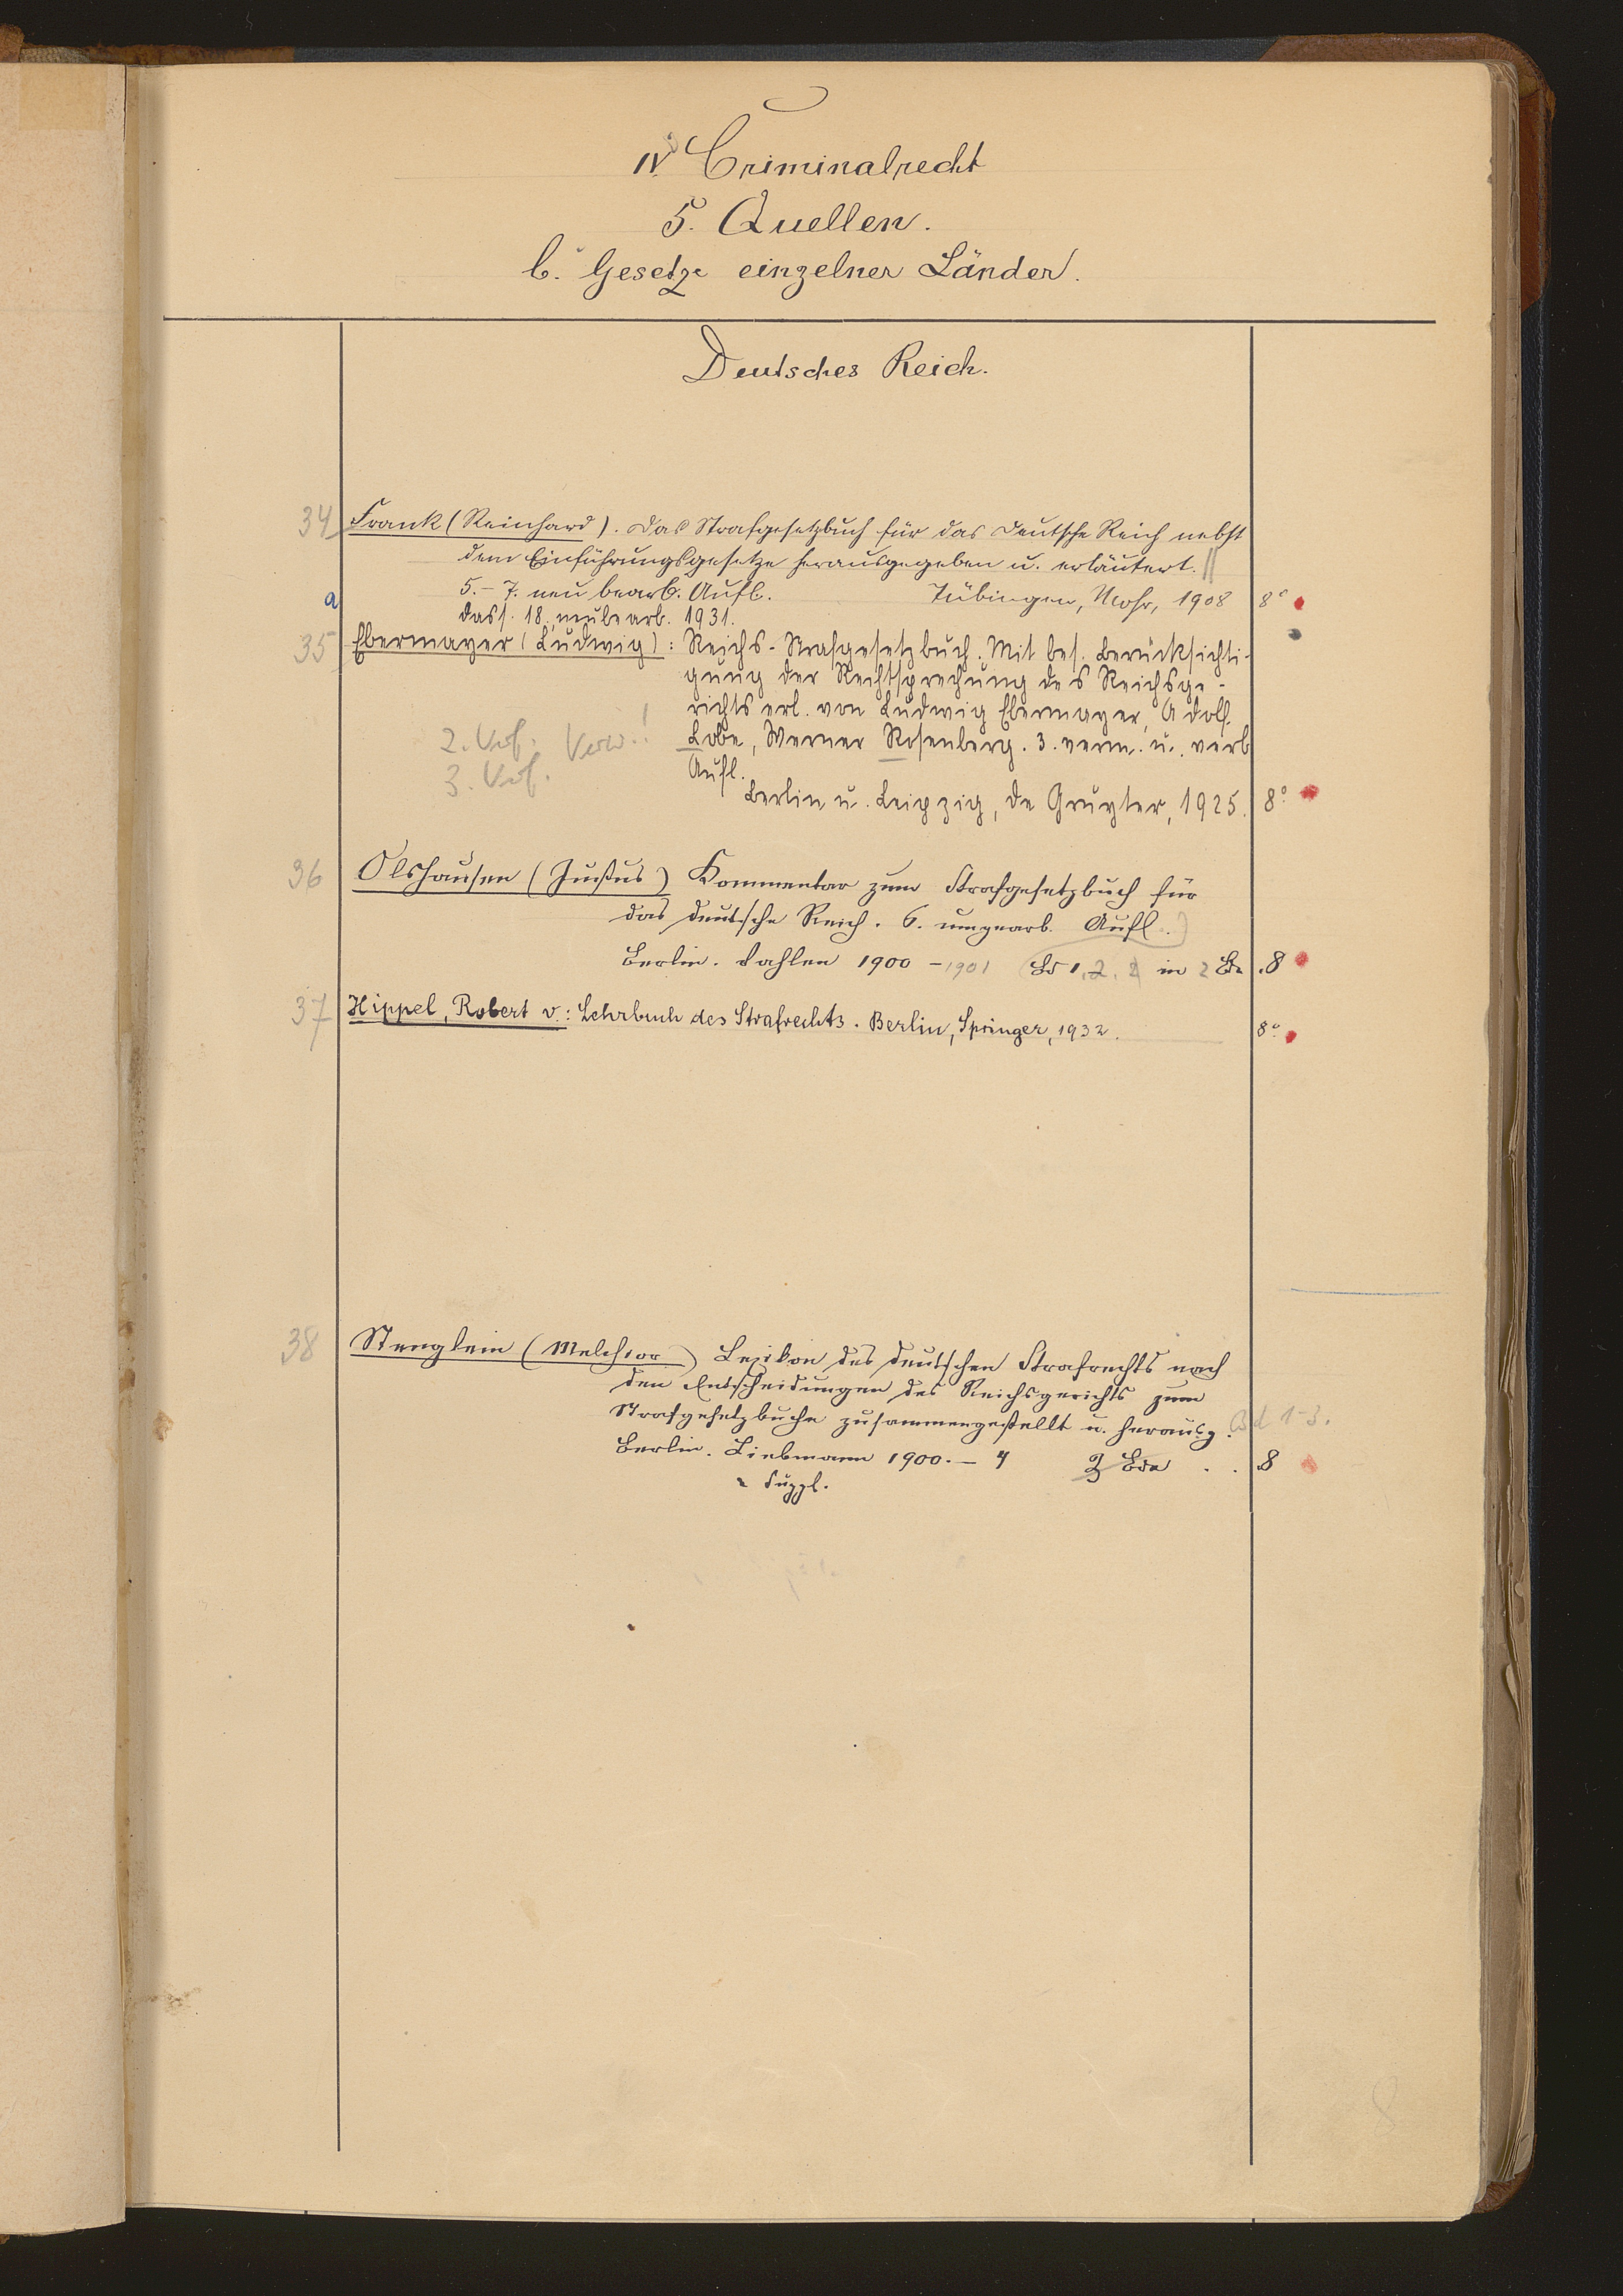 IV. Criminalrecht
5. Quellen.
b. Gesetze einzelner Länder.
Deutsches Reich.
34 Frank (Reinhard). Das Strafgesetzbuch für das Deutsche Reich nebst
dem Einführungsgesetze herausgegeben u. erläutert.
5.-7. neu bearb. Aufl. Tübingen, Mohr, 1908 8°
a dass. 18., neubearb. 1931.
35 Ebermayer (Ludwig): Reichs-Strafgesetzbuch. Mit bes. Berücksichti-
gung der Rechtsprechung des Reichsge-
richts erl. von Ludwig Ebermayer, Adolf
Lobe, Werner Rosenberg. 3. verm. u. verb
Aufl.
2. Verf. Verw.!
3. Verf.
Berlin u. Leipzig, de Gruyter, 1925. 8°
36 Olshausen (Justus) Kommentar zum Strafgesetzbuch für
das deutsche Reich. 6. umgearb. Aufl.
Berlin. Vahlen 1900 - 1901 Bd 1, 2. in 2 Bde . 8
37 Hippel, Robert v.: Lehrbuch des Strafrechts. Berlin, Springer, 1932. 8°
38 Stenglein (Melchior) Lexikon des deutschen Strafrechts nach
den Entscheidungen des Reichsgerichts zum
Strafgesetzbuche zusammengestellt u. herausg. Bd 1-3.
Berlin. Liebmann 1900. - 4 2 Bde . . 8
Suppl.